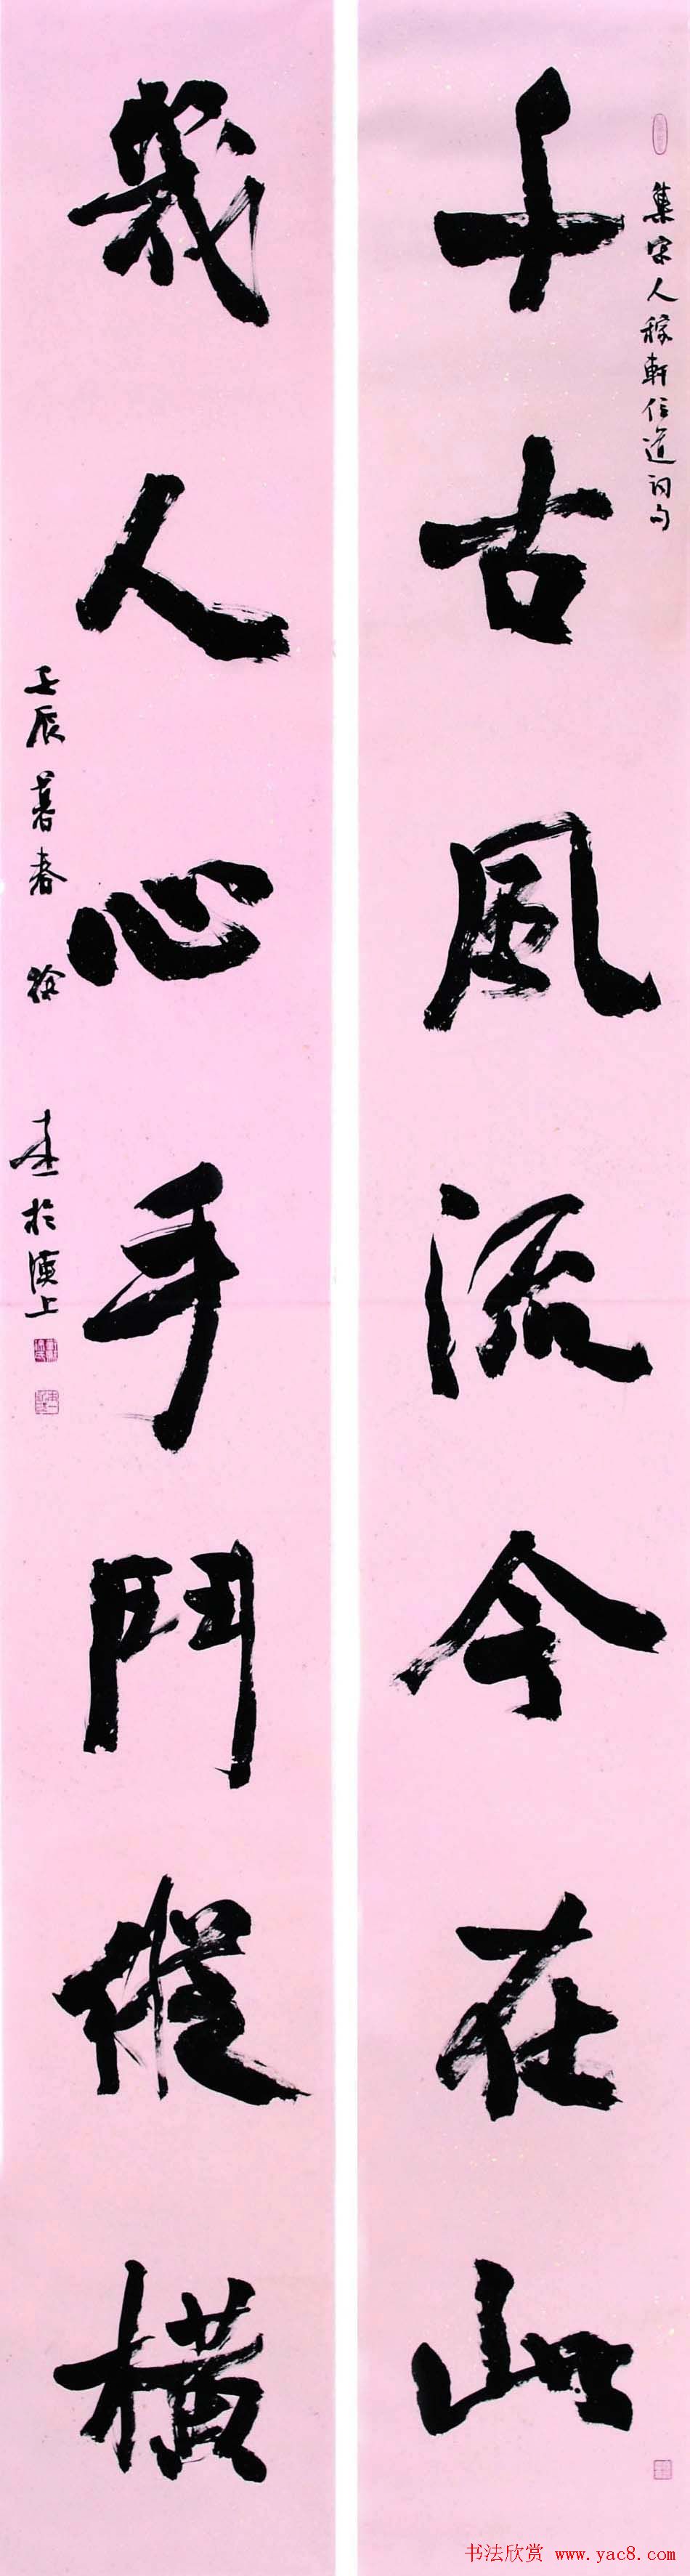 集宋人稼軒信道詞句
千古風流今在此
幾人心手鬥縱橫
壬辰暮春 徐 於漢上
书法欣赏 www.yac8.com